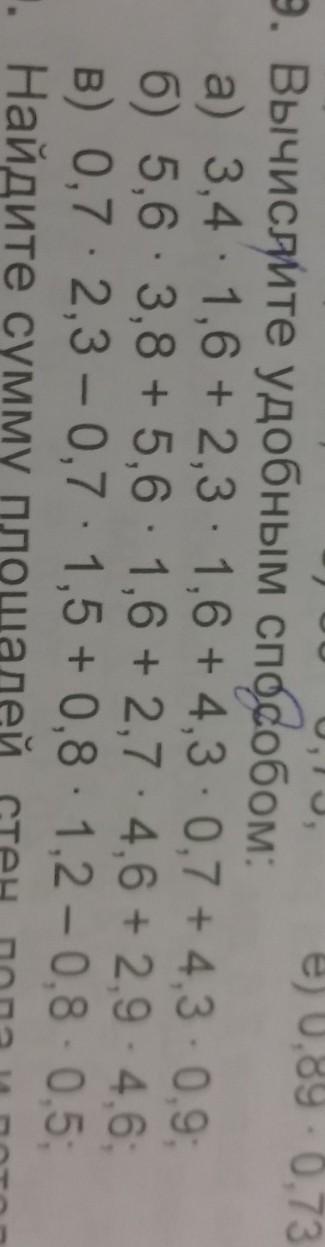 е) 0,89 · 0,73
9. Вычислите удобным способом:
а) 3,4 · 1,6 + 2,3 · 1,6 + 4,3 · 0,7 + 4,3 · 0,9;
б) 5,6 · 3,8 + 5,6 · 1,6 + 2,7 · 4,6 + 2,9 · 4,6;
в) 0,7 · 2,3 – 0,7 · 1,5 + 0,8 · 1,2 – 0,8 · 0,5;
Найдите сумму площадей стен, пола и